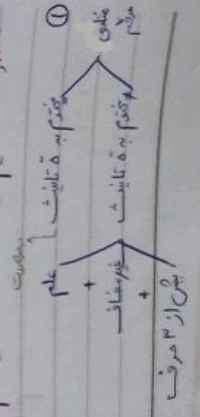 ①
منادی
مرخم
مختوم به ة تانیث
مختوم به ة تانیث
علم
+
غیرمضاف
+
بیش از ۳ حرف